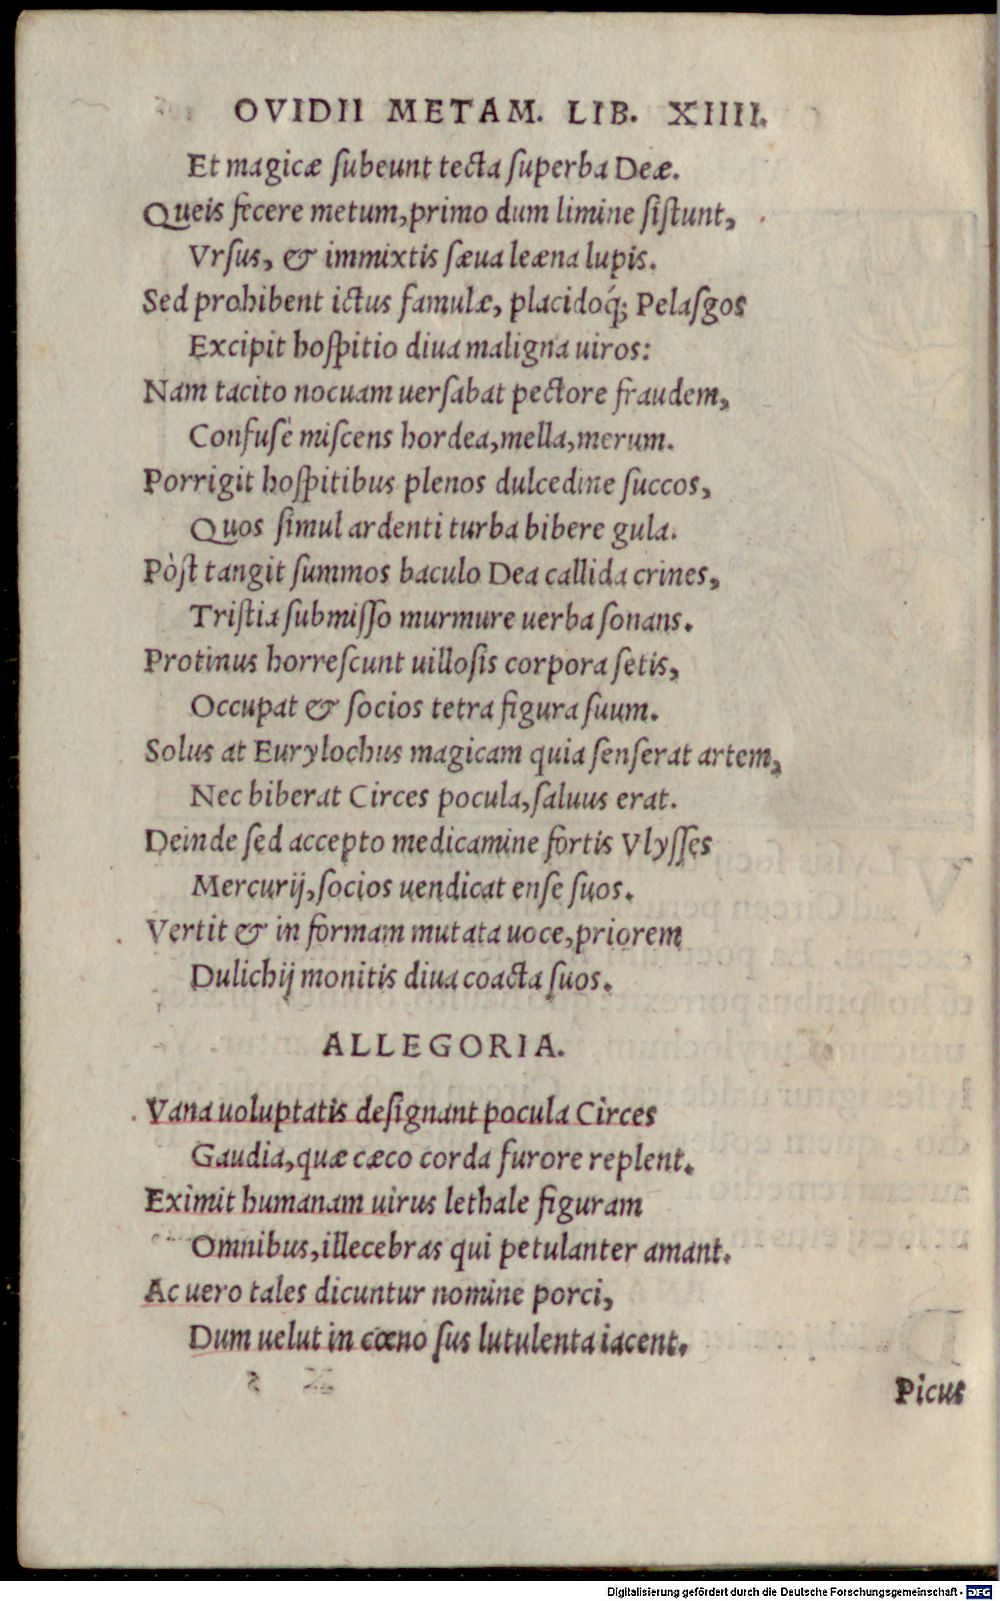 OVIDII METAM. LIB. XIIII.
Et magicæ ſubeunt tecta ſuperba Deæ.
Queis fecere metum, primo dum limine ſiſtunt,
Vrſus, & immixtis ſæua leæna lupis.
Sed prohibent ictus famulæ, placidoq́; Pelaſgos
Excipit hoſpitio diua maligna uiros:
Nam tacito nocuam uerſabat pectore fraudem,
Confuſè miſcens hordea, mella, merum.
Porrigit hoſpitibus plenos dulcedine ſuccos,
Quos ſimul ardenti turba bibere gula.
Pòſt tangit ſummos baculo Dea callida crines,
Triſtia ſubmiſſo murmure uerba ſonans.
Protinus horreſcunt uilloſis corpora ſetis,
Occupat & ſocios tetra figura ſuum.
Solus at Eurylochus magicam quia ſenſerat artem,
Nec biberat Circes pocula, ſaluus erat.
Deinde ſed accepto medicamine fortis Vlyſſes
Mercurij, ſocios uendicat enſe ſuos.
Vertit & in formam mutata uoce, priorem
Dulichij monitis diua coacta ſuos.
ALLEGORIA.
Vana uoluptatis deſignant pocula Circes
Gaudia, quæ cæco corda furore replent.
Eximit humanam uirus lethale figuram
Omnibus, illecebras qui petulanter amant.
Ac uero tales dicuntur nomine porci,
Dum uelut in cœno ſus lutulenta iacent.
Picus
Digitalisierung gefördert durch die Deutsche Forschungsgemeinschaft - DFG